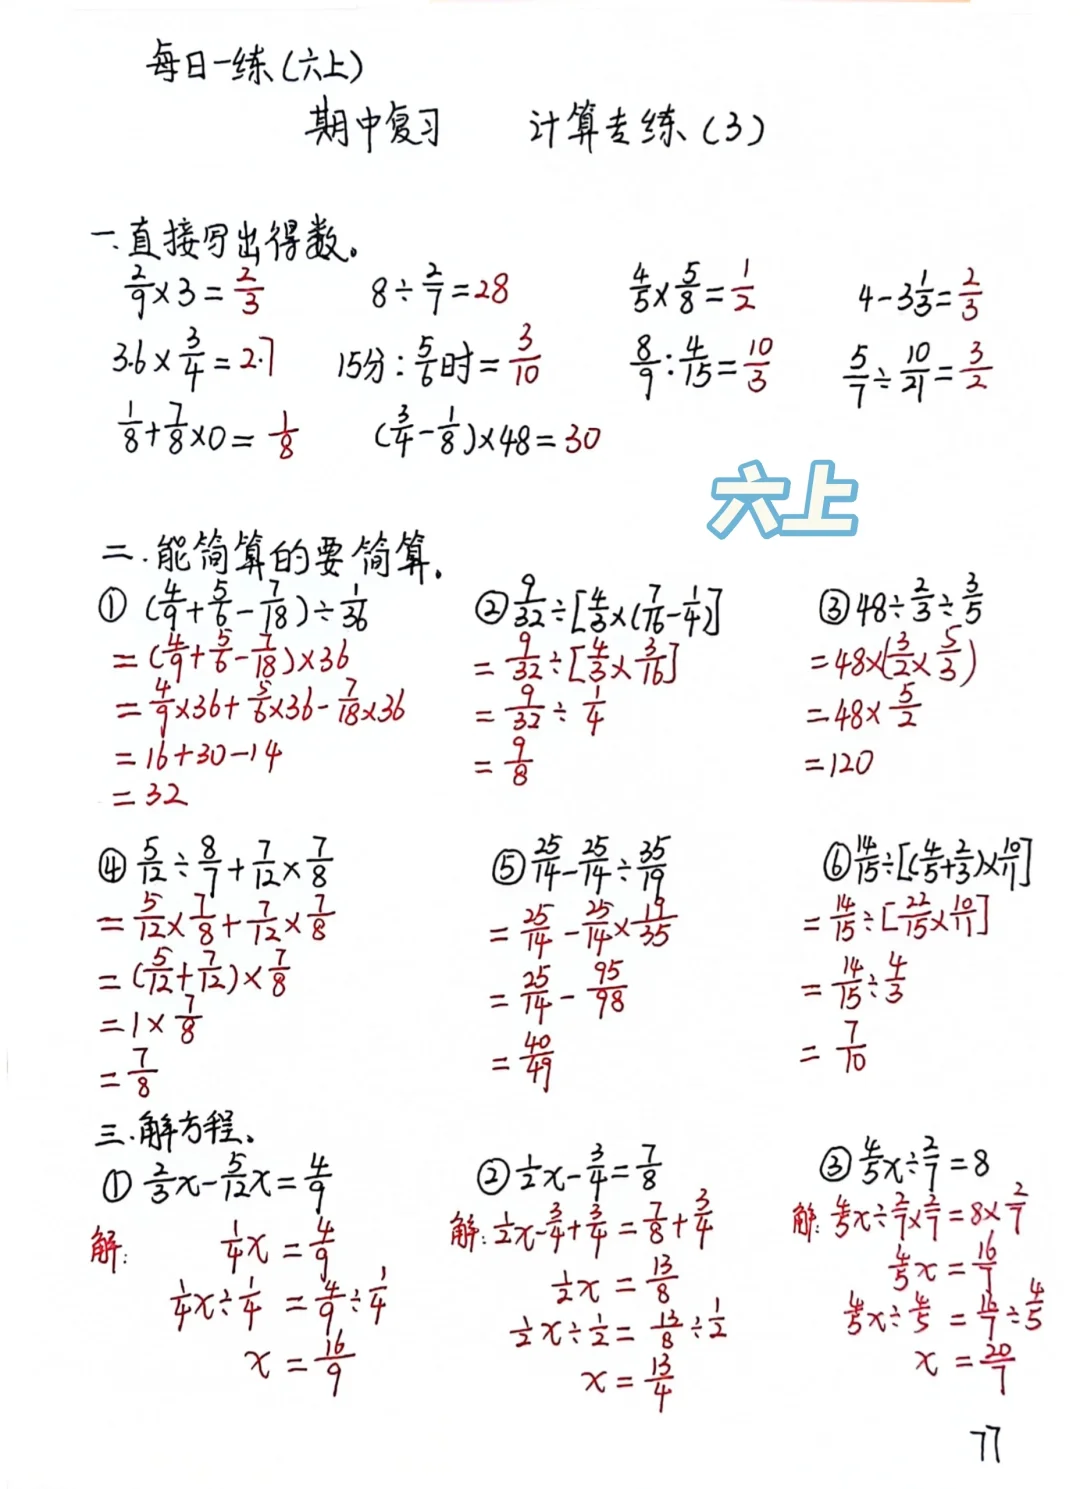 每日一练(六上)
期中复习 计算专练(3)
一.直接写出得数。
2/9×3=2/3 8÷2/7=28 4/5×5/8=1/2 4-3 1/3=2/3
3.6×3/4=2.7 15分:5/6时=3/10 8/9:4/15=10/3 5/7÷10/21=3/2
1/8+7/8×0=1/8 (3/4-1/8)×48=30
六上
二.能简算的要简算。
①(4/9+5/6-7/18)÷1/36
=(4/9+5/6-7/18)×36
=4/9×36+5/6×36-7/18×36
=16+30-14
=32
②9/32÷[4/3×(7/16-1/4)]
=9/32÷[4/3×3/16]
=9/32÷1/4
=9/8
③48÷2/3÷3/5
=48×(3/2×5/3)
=48×5/2
=120
④5/12÷8/7+7/12×7/8
=5/12×7/8+7/12×7/8
=(5/12+7/12)×7/8
=1×7/8
=7/8
⑤25/14-25/14÷35/19
=25/14-25/14×19/35
=25/14-95/98
=40/49
⑥14/15÷[(4/5+2/3)×10/11]
=14/15÷[22/15×10/11]
=14/15÷4/3
=7/10
三.解方程。
①2/3x-5/12x=4/9
解: 1/4x=4/9
1/4x÷1/4=4/9÷1/4
x=16/9
②1/2x-3/4=7/8
解:1/2x-3/4+3/4=7/8+3/4
1/2x=13/8
1/2x÷1/2=13/8÷1/2
x=13/4
③4/5x÷2/7=8
解:4/5x÷2/7×2/7=8×2/7
4/5x=16/7
4/5x÷4/5=16/7÷4/5
x=20/7
77